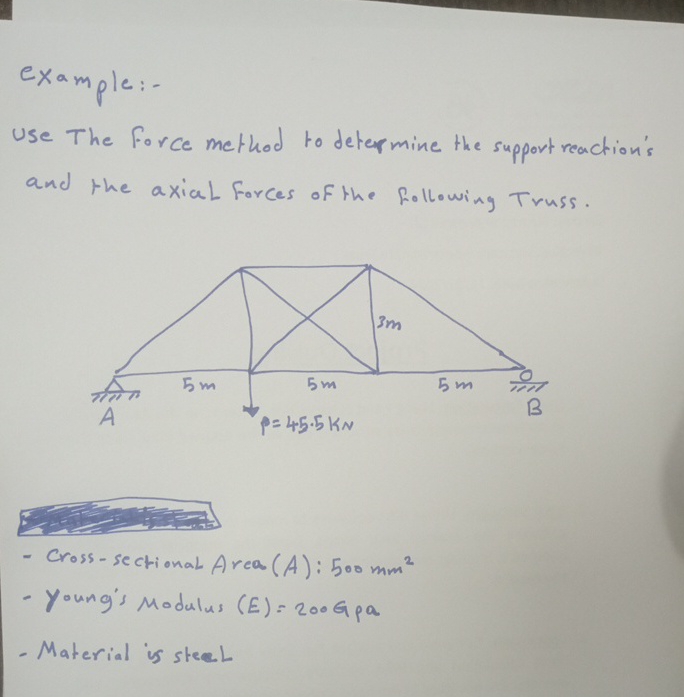 example:-
Use The Force method to determine the support reaction's
and the axial forces of the following Truss.
3m
5m 5m 5m
A
B
P=45.5KN
- Cross-sectional Area (A): 500 mm²
- Young's Modulus (E)= 200Gpa
- Material is steel